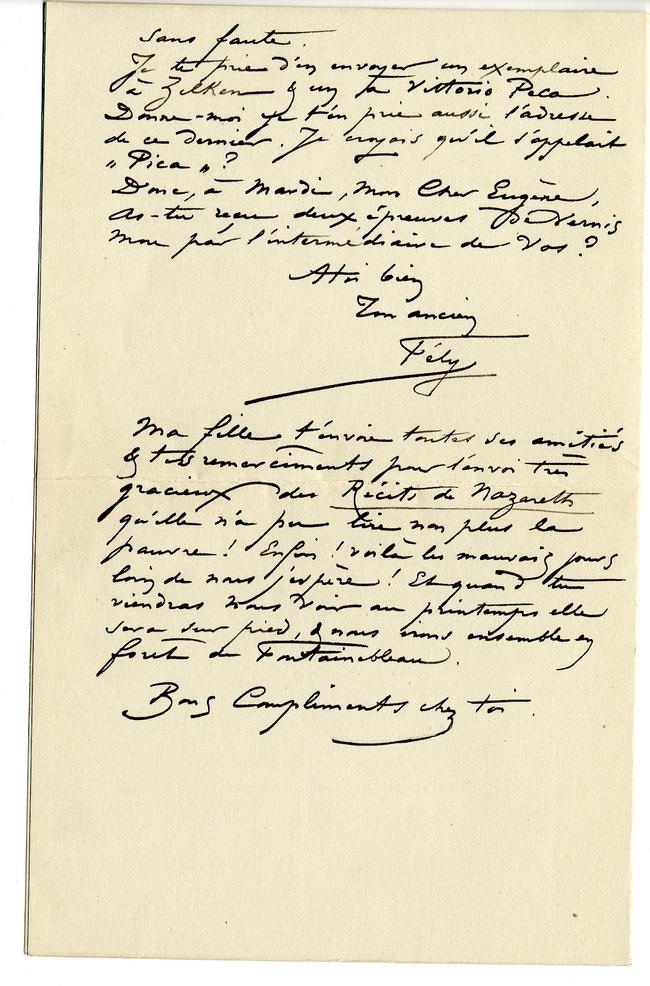 sans faute.
Je te prie d'en envoyer un exemplaire
à Zilken & un à Vittorio Peca.
Donne-moi je t'en prie aussi l'adresse
de ce dernier. Je croyais qu'il s'appelait
„ Pica „ ?
Donc, à Mardi, Mon Cher Eugène,
As-tu reçu deux épreuves De Vernis
mou par l'intermédiaire de Vos ?
A toi bien
Ton ancien
Fély
Ma fille t'envoie toutes ses amitiés
& ses remerciments pour l'envoi très
gracieux des Récits de Nazareth
qu'elle n'a pu lire non plus la
pauvre ! Enfin ! voilà les mauvais jours
loin de nous j'espère ! Et quand tu
viendras nous voir au printemps elle
sera sur pied, & nous irons ensemble en
forêt de Fontainebleau.
Bons Compliments chez toi.